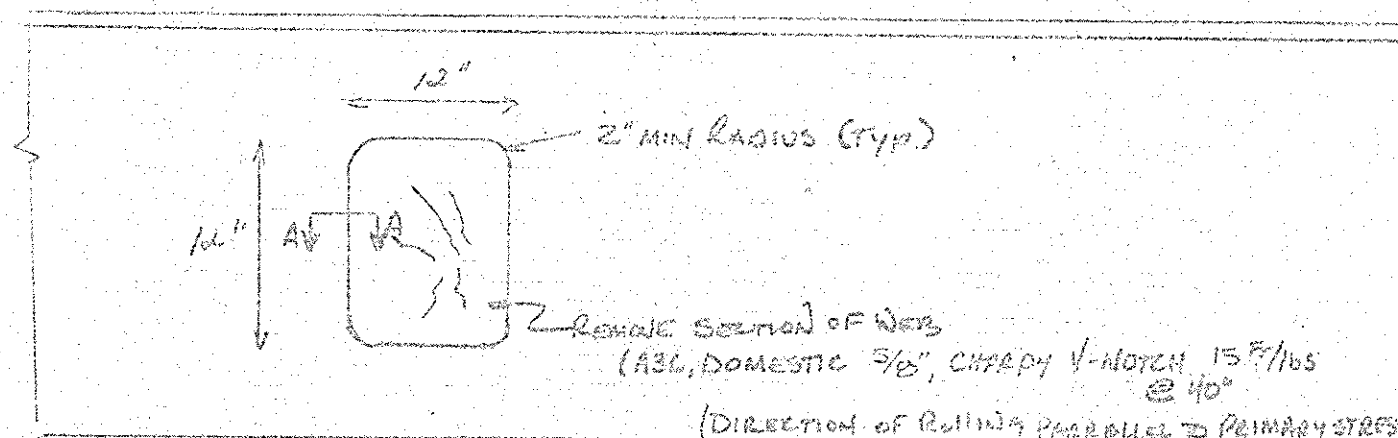 12"
2" MIN RADIUS (TYP.)
12"
A A
REMOVE SECTION OF WEB
(A36, DOMESTIC 5/8", CHARPY V-NOTCH 15 FT/lbs
@ 40°
(DIRECTION OF ROLLING PARRALLEL TO PRIMARY STRES